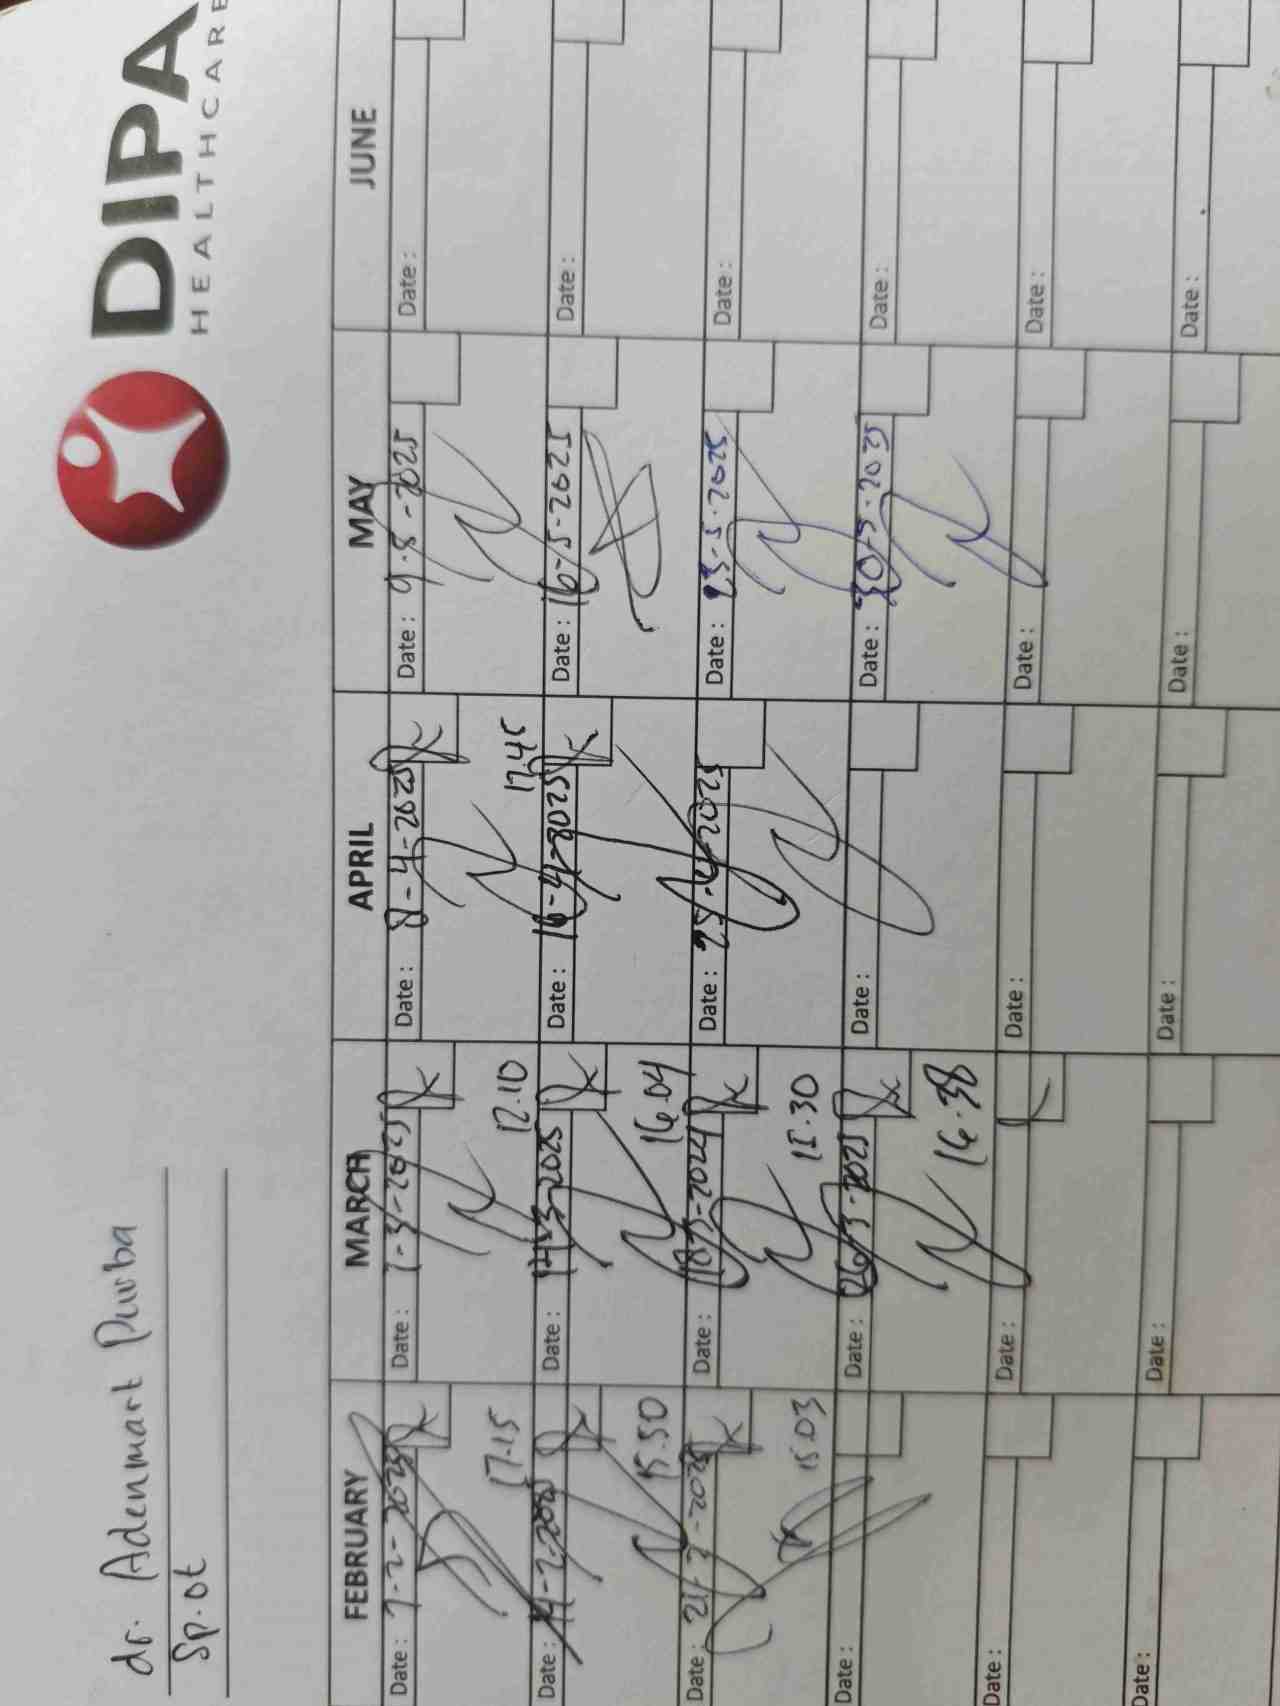 DIPA
HEALTHCARE
dr. Adenmart Purba
Sp.ot
FEBRUARY MARCH APRIL MAY JUNE
Date : 7-2-2025 Date : 7-3-2025 Date : 8-4-2025 Date : 9-5-2025 Date :
17.15 12.10 17.45
Date : 14-2-2025 Date : 14-3-2025 Date : 16-4-2025 Date : 16-5-2025 Date :
15.50 16.04
Date : 21-2-2025 Date : 18-3-2024 Date : 25-4-2025 Date : 23-5-2025 Date :
15.03 15.30
Date : Date : 26-3-2025 Date : Date : 30-5-2025 Date :
16.38
Date : Date : Date : Date : Date :
Date : Date : Date : Date : Date :